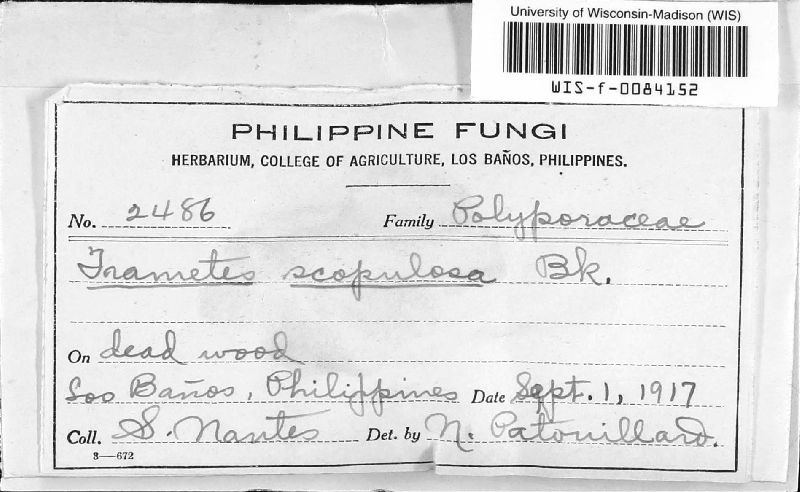 University of Wisconsin-Madison (WIS)
WIS-f-0084152
PHILIPPINE FUNGI
HERBARIUM, COLLEGE OF AGRICULTURE, LOS BAÑOS, PHILIPPINES.
No. 2486 Family Polyporaceae
Trametes scopulosa Bk.
On dead wood
Los Baños, Philippines Date Sept. 1, 1917
Coll. S. Nantes Det. by N. Patouillard.
3—672